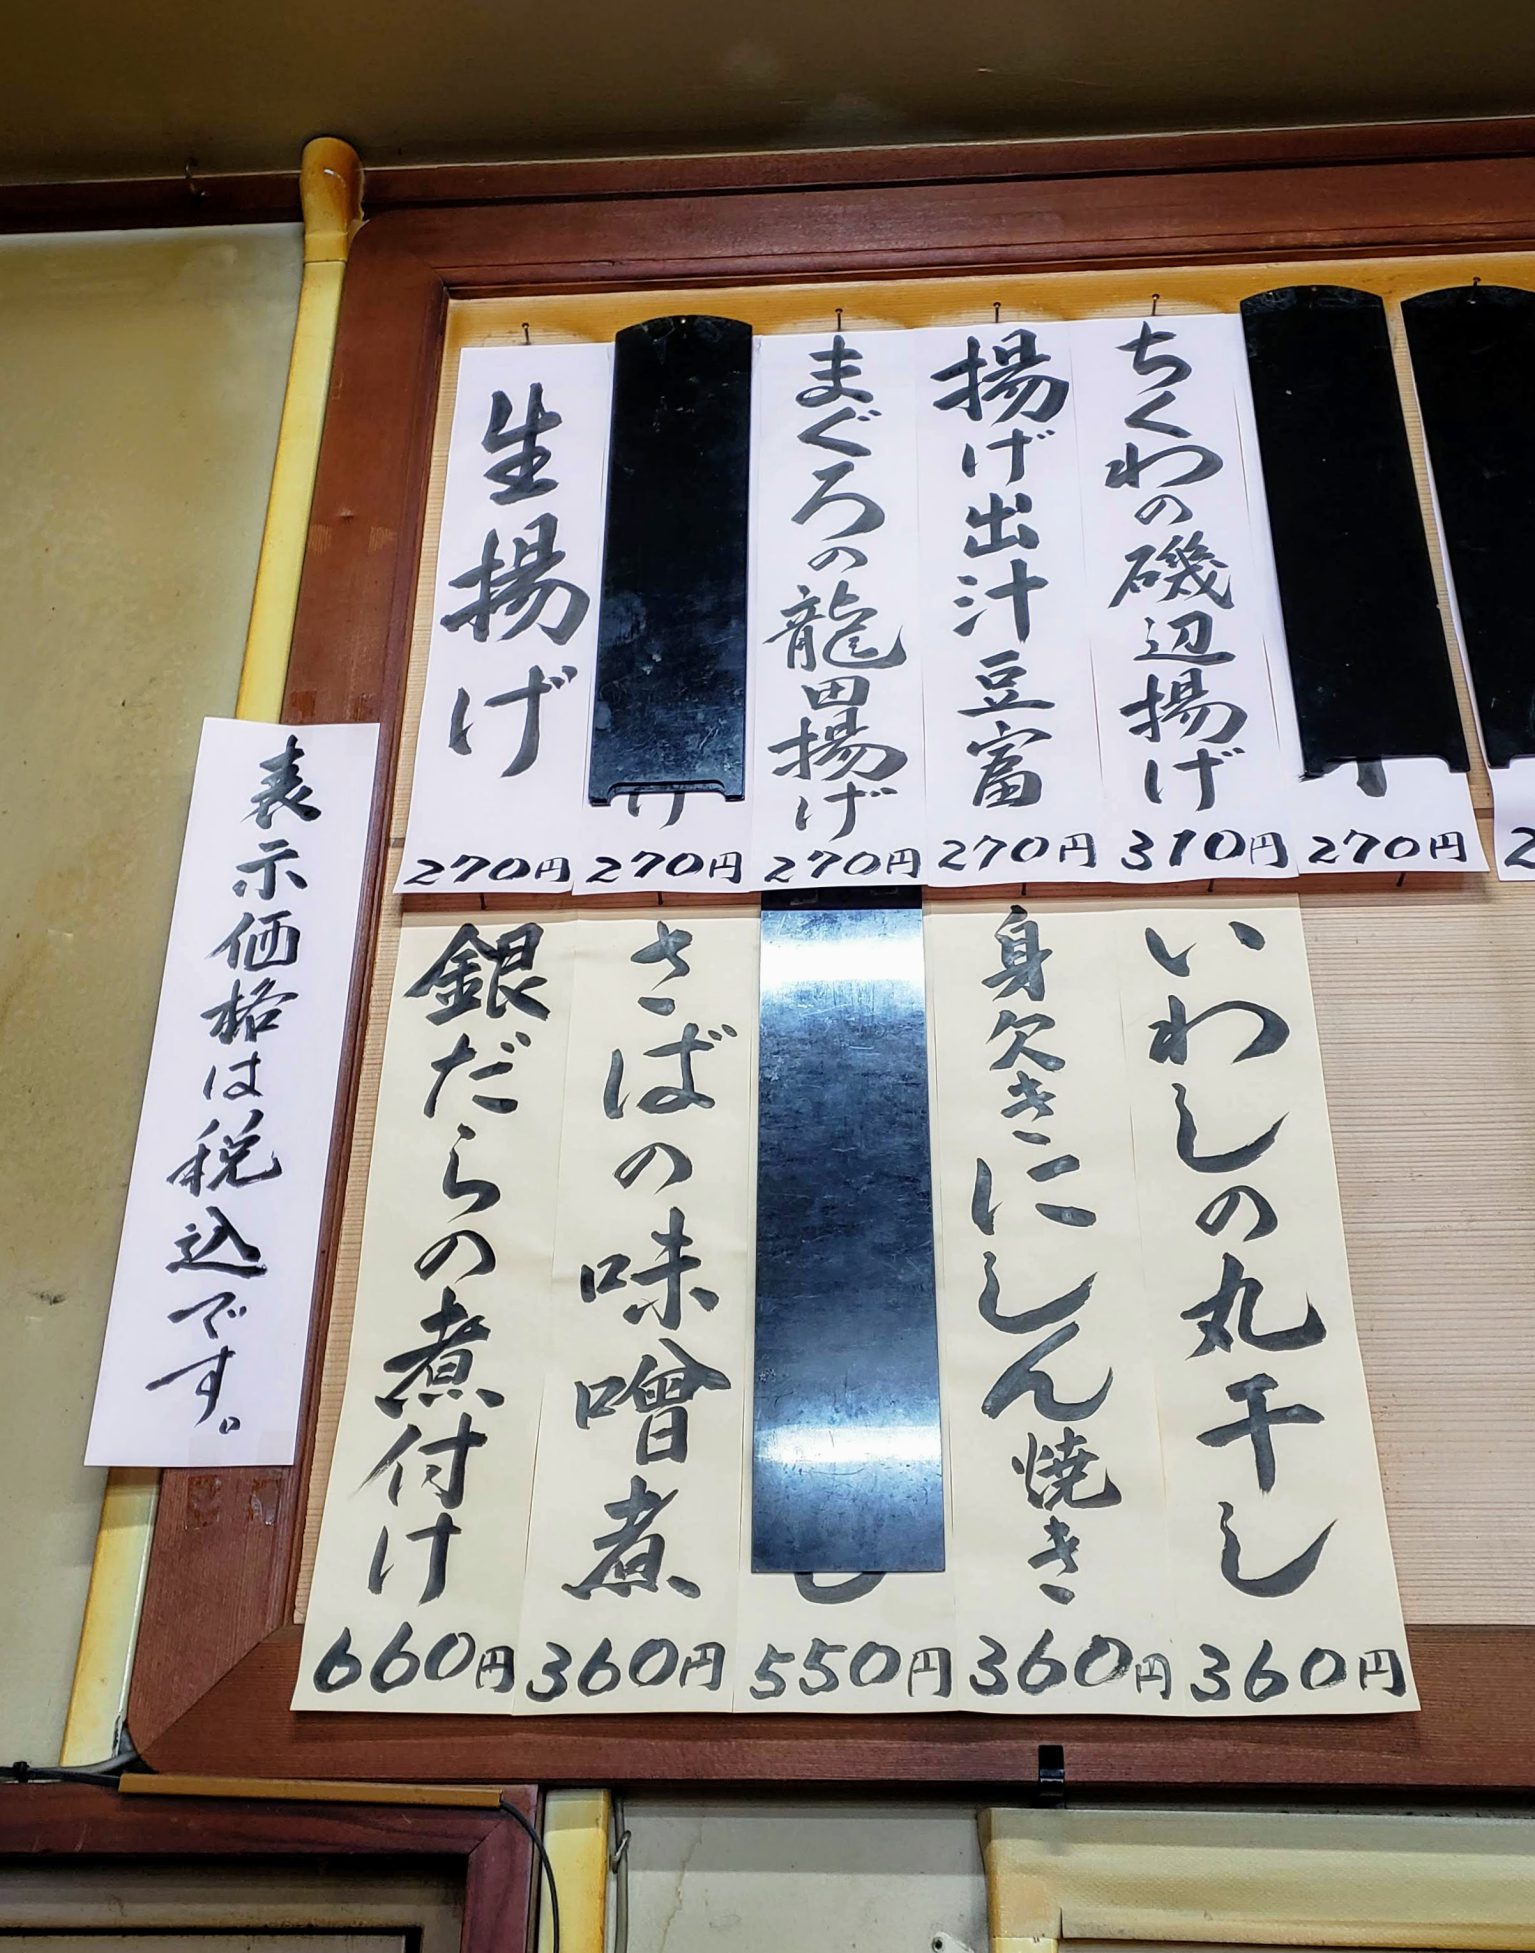 ちくわの磯辺揚げ
310円
揚げ出汁豆富
270円
まぐろの龍田揚げ
270円
げ
270円
生揚げ
270円
270円
いわしの丸干し
360円
身欠きにしん焼き
360円
し
550円
さばの味噌煮
360円
銀だらの煮付け
660円
表示価格は税込です。